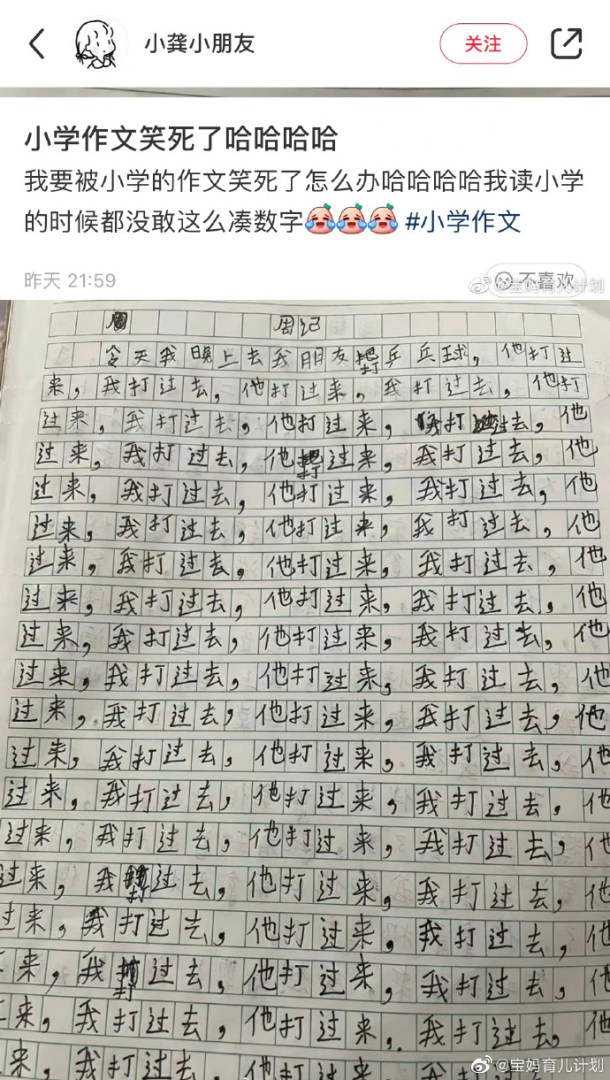 小龚小朋友 关注
小学作文笑死了哈哈哈哈
我要被小学的作文笑死了怎么办哈哈哈哈我读小学
的时候都没敢这么凑数字 #小学作文
昨天 21:59 不喜欢
@宝妈育儿计划
周记
今天我晚上去我朋友打乒乓球,他打过
来,我打过去,他打过来,我打过去,他打
过来,我打过去,他打过来,我打过去,他
过来,我打过去,他打过来,我打过去,他
过来,我打过去,他打过来,我打过去,他
过来,我打过去,他打过来,我打过去,他
过来,我打过去,他打过来,我打过去,他
过来,我打过去,他打过来,我打过去,他
过来,我打过去,他打过来,我打过去,他
过来,我打过去,他打过来,我打过去,他
过来,我打过去,他打过来,我打过去,他
过来,我打过去,他打过来,我打过去,他
过来,我打过去,他打过来,我打过去,他
过来,我打过去,他打过来,我打过去,他
过来,我打过去,他打过来,我打过去,他
过来,我打过去,他打过来,我打过去,他
来,我打过去,他打过来,我打过去,
来,我打过去,他打过来,我打过去,他
来,我打过去,他打过来,我打
@宝妈育儿计划